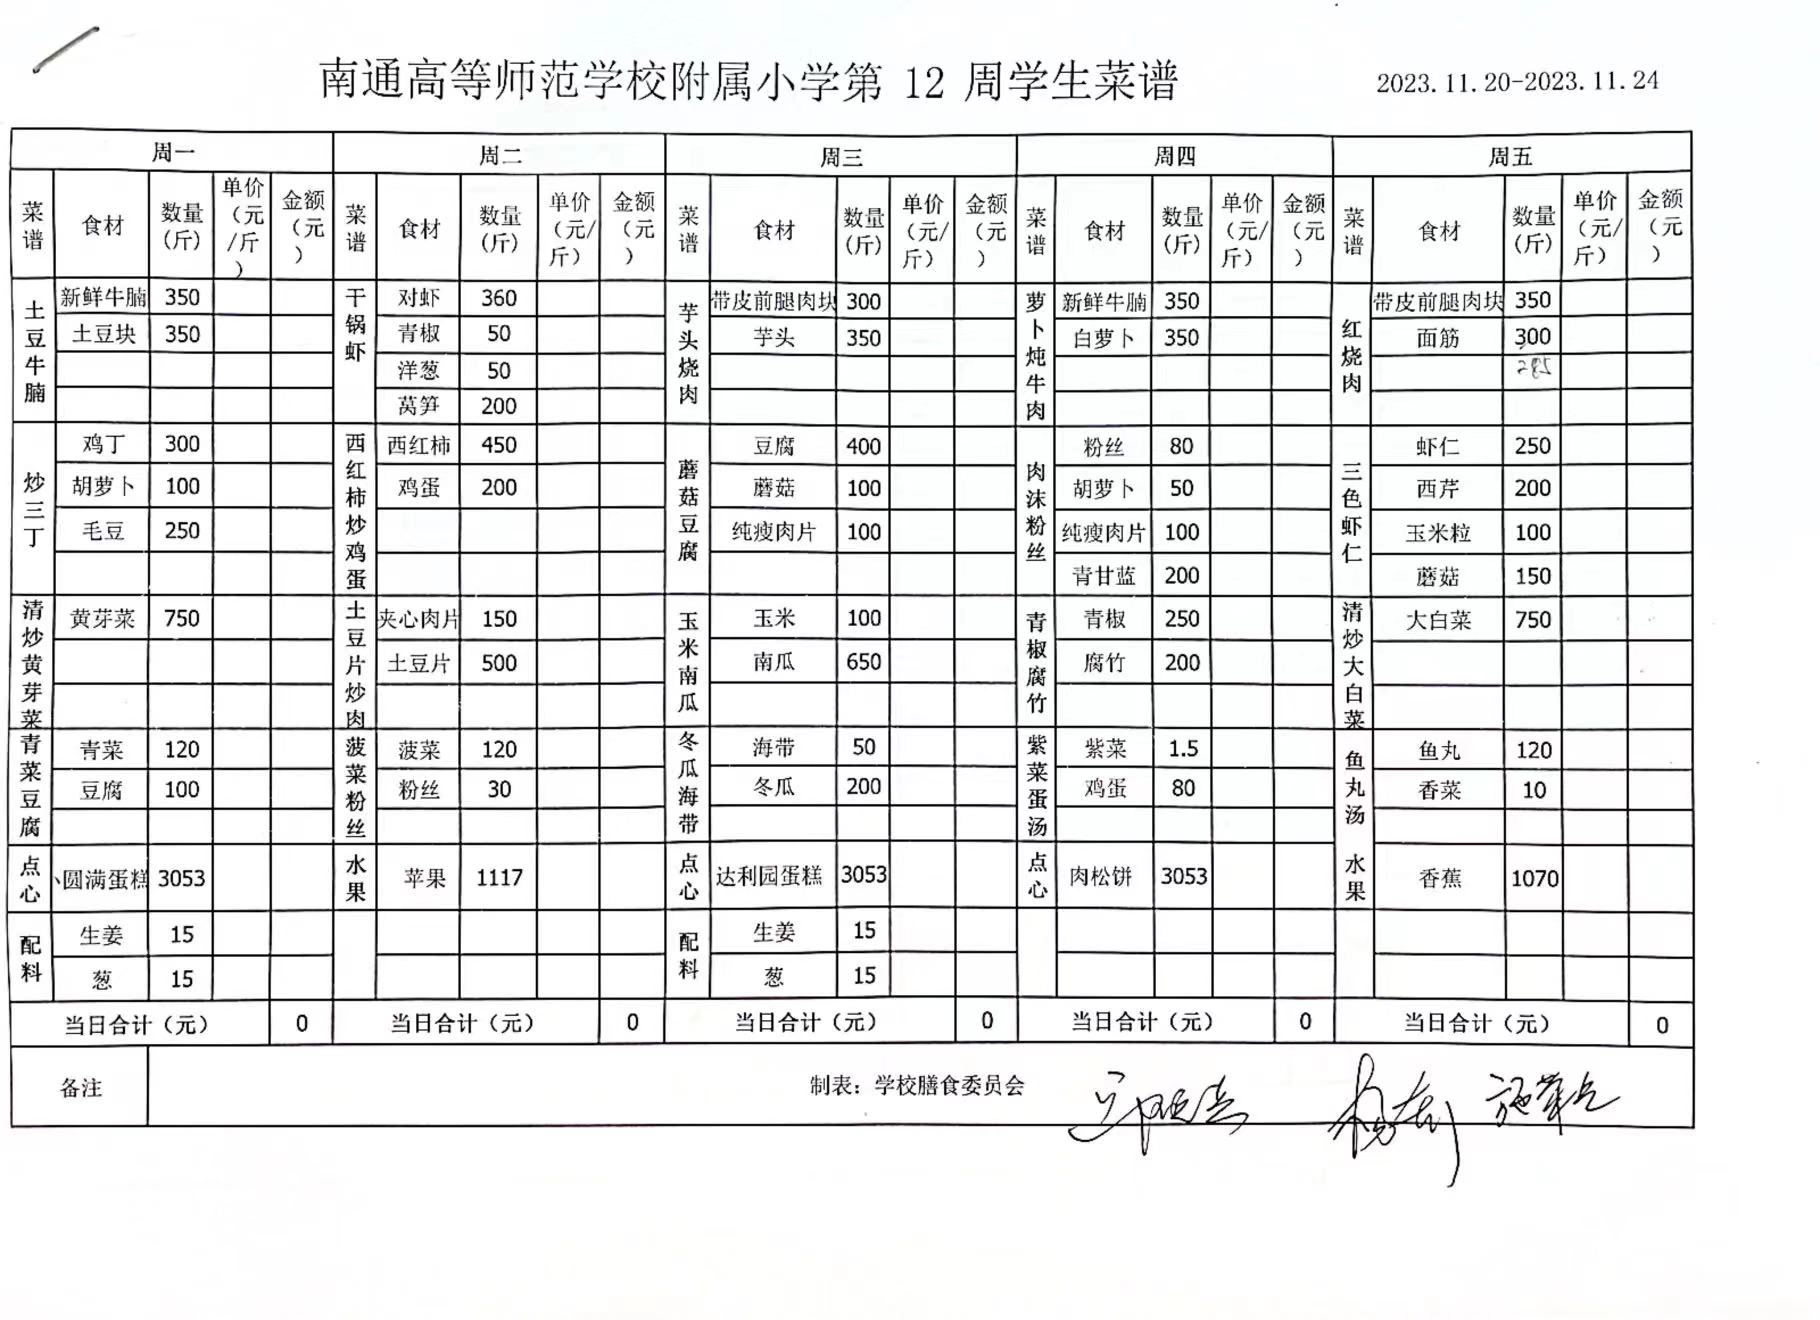 南通高等师范学校附属小学第 12 周学生菜谱 2023.11.20-2023.11.24
周一 周二 周三 周四 周五
菜谱 食材 数量(斤) 单价(元/斤) 金额(元) 菜谱 食材 数量(斤) 单价(元/斤) 金额(元) 菜谱 食材 数量(斤) 单价(元/斤) 金额(元) 菜谱 食材 数量(斤) 单价(元/斤) 金额(元) 菜谱 食材 数量(斤) 单价(元/斤) 金额(元)
土豆牛腩 新鲜牛腩 350 干锅虾 对虾 360 芋头烧肉 带皮前腿肉块 300 萝卜炖牛肉 新鲜牛腩 350 红烧肉 带皮前腿肉块 350
土豆块 350 青椒 50 芋头 350 白萝卜 350 面筋 300
洋葱 50 285
莴笋 200
炒三丁 鸡丁 300 西红柿炒鸡蛋 西红柿 450 蘑菇豆腐 豆腐 400 肉沫粉丝 粉丝 80 三色虾仁 虾仁 250
胡萝卜 100 鸡蛋 200 蘑菇 100 胡萝卜 50 西芹 200
毛豆 250 纯瘦肉片 100 纯瘦肉片 100 玉米粒 100
青甘蓝 200 蘑菇 150
清炒黄芽菜 黄芽菜 750 土豆片炒肉 夹心肉片 150 玉米南瓜 玉米 100 青椒腐竹 青椒 250 清炒大白菜 大白菜 750
土豆片 500 南瓜 650 腐竹 200
青菜豆腐 青菜 120 菠菜粉丝 菠菜 120 冬瓜海带 海带 50 紫菜蛋汤 紫菜 1.5 鱼丸汤 鱼丸 120
豆腐 100 粉丝 30 冬瓜 200 鸡蛋 80 香菜 10
点心 小圆满蛋糕 3053 水果 苹果 1117 点心 达利园蛋糕 3053 点心 肉松饼 3053 水果 香蕉 1070
配料 生姜 15 配料 生姜 15
葱 15 葱 15
当日合计（元） 0 当日合计（元） 0 当日合计（元） 0 当日合计（元） 0 当日合计（元） 0
备注 制表：学校膳食委员会